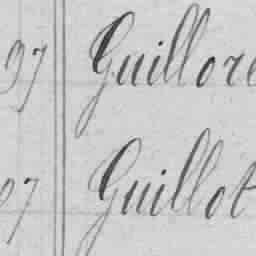 97 Guillore
97 Guillot